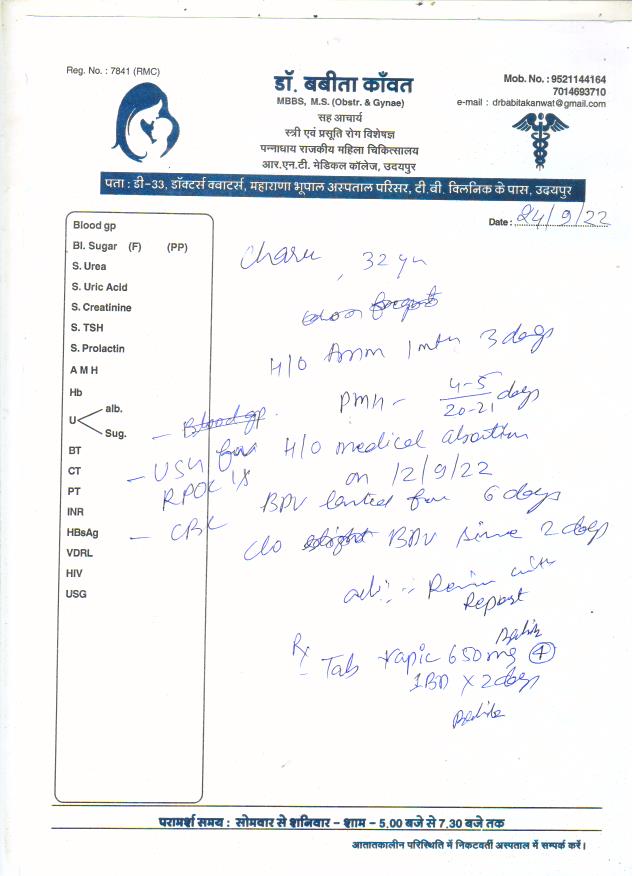 Reg. No. : 7841 (RMC)
डॉ. बबीता काँवत
MBBS, M.S. (Obstr. & Gynae)
सह आचार्य
स्त्री एवं प्रसूति रोग विशेषज्ञ
पन्नाधाय राजकीय महिला चिकित्सालय
आर.एन.टी. मेडिकल कॉलेज, उदयपुर
Mob. No. : 9521144164
7014693710
e-mail : drbabitakanwat@gmail.com
पता : डी-33, डॉक्टर्स क्वाटर्स, महाराणा भूपाल अस्पताल परिसर, टी.बी. क्लिनिक के पास, उदयपुर
Date : 24/9/22
Blood gp
Bl. Sugar (F) (PP)
S. Urea
S. Uric Acid
S. Creatinine
S. TSH
S. Prolactin
A M H
Hb
U alb.
Sug.
BT
CT
PT
INR
HBsAg
VDRL
HIV
USG
Charu, 32 yr
H/O Amm 1 mth 3 days
PMH - 4-5/20-21 days
- Blood gp.
H/O medical abortion
on 12/9/22
- USG for
RPOC's
- CBC
BPV lasted for 6 days
C/o slight BPV since 2 days
adv :- Review with
Report
Rx
- Tab Trapic 650mg 4
1 BD x 2 days
परामर्श समय : सोमवार से शनिवार – शाम – 5.00 बजे से 7.30 बजे तक
आतातकालीन परिस्थिति में निकटवर्ती अस्पताल में सम्पर्क करें।